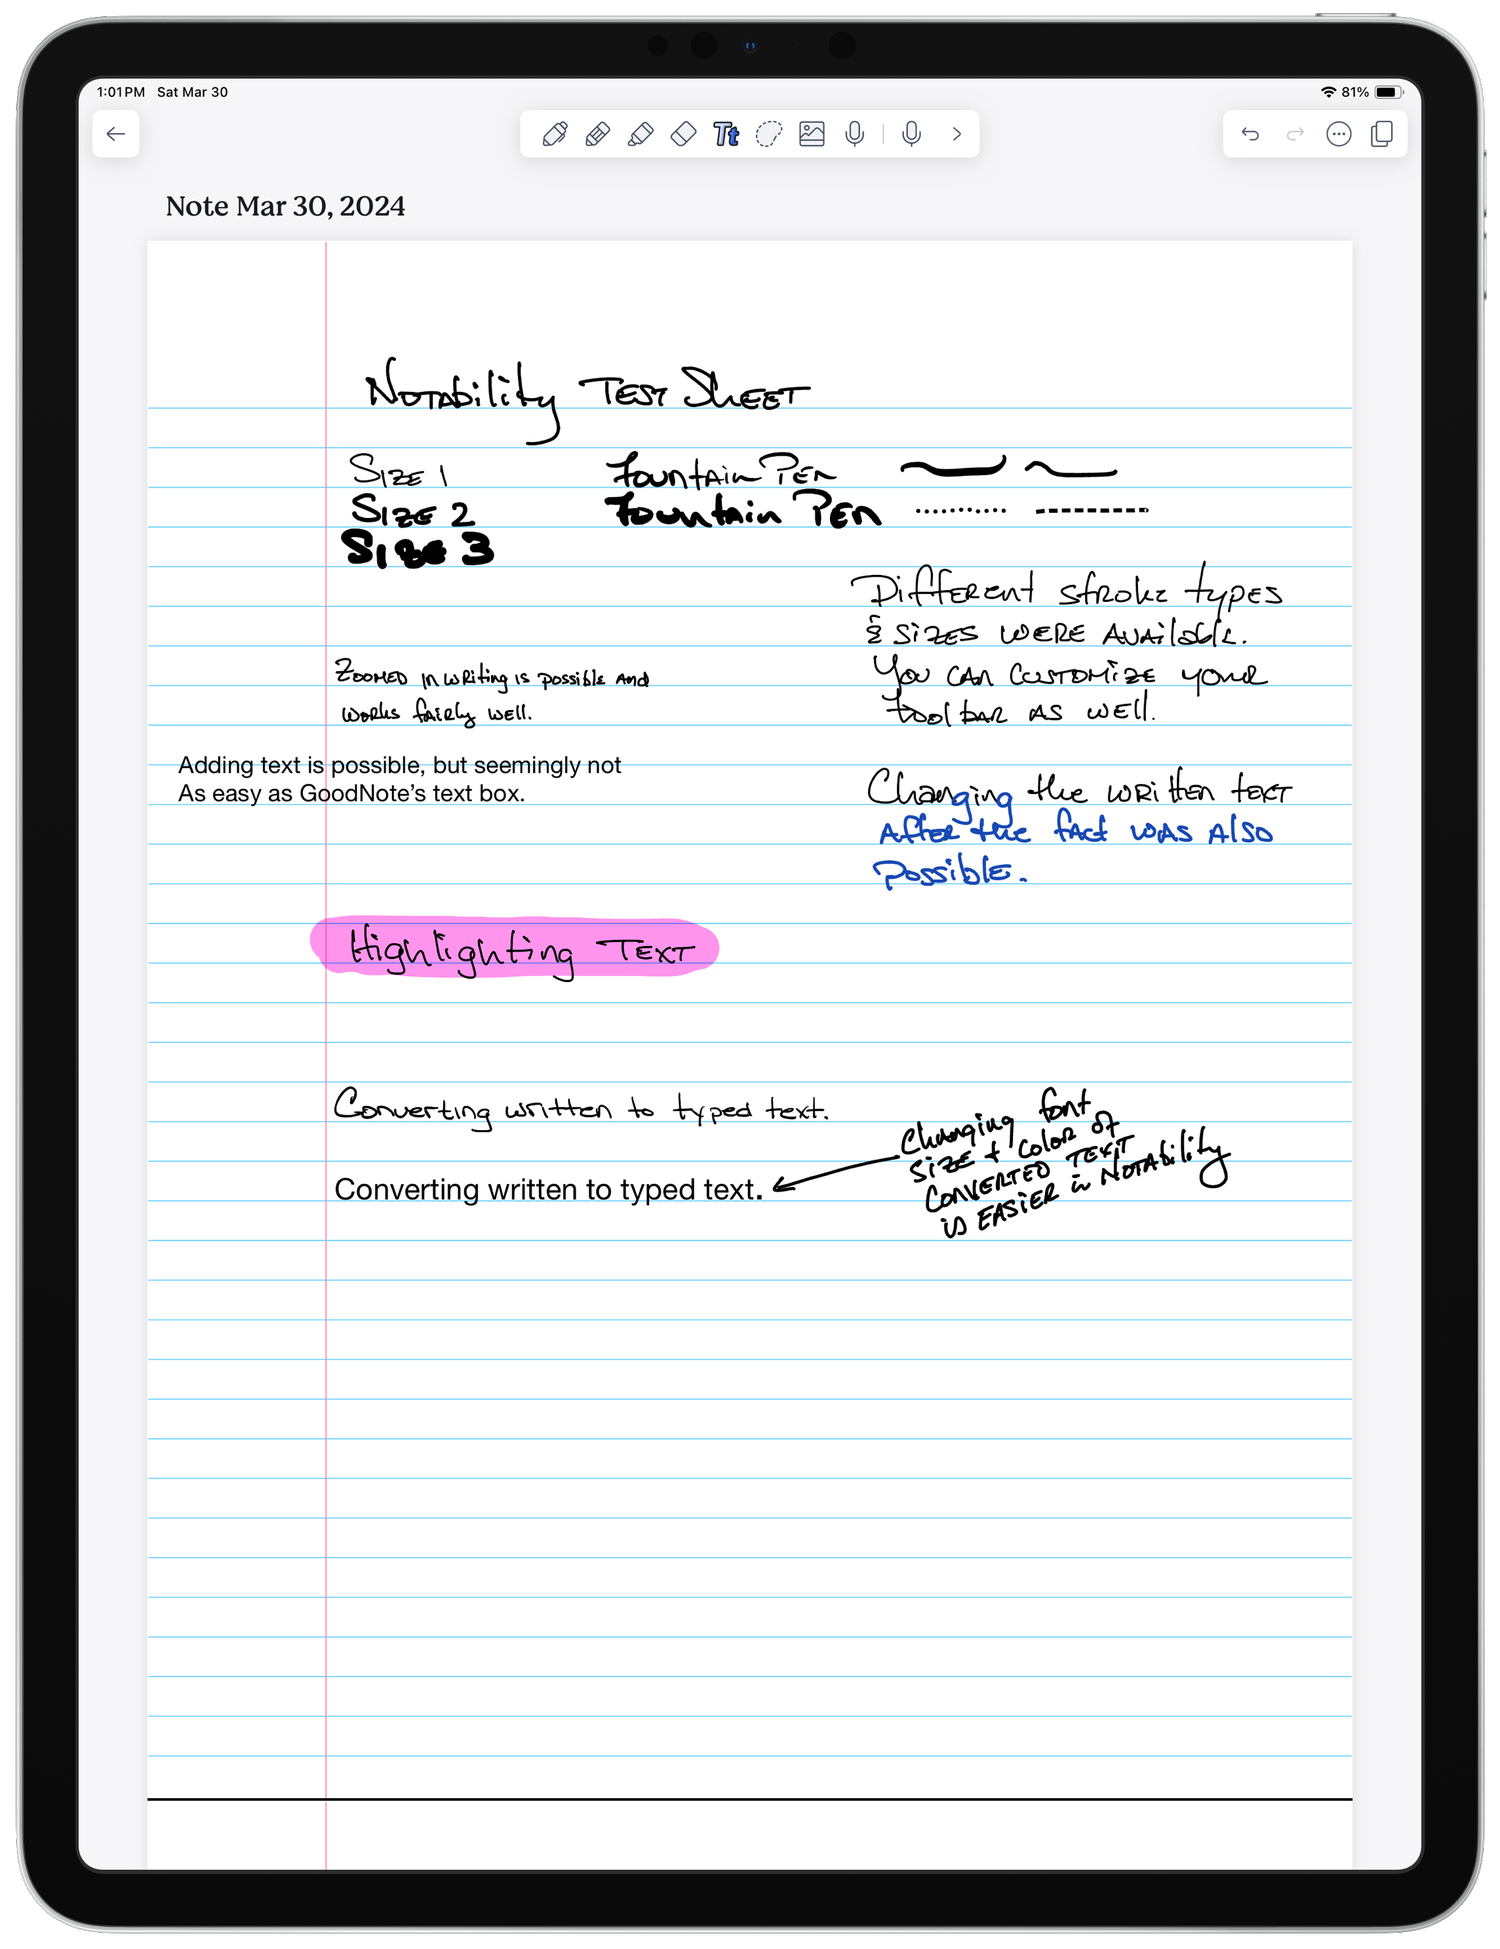 1:01 PM Sat Mar 30
81%
Tt
Note Mar 30, 2024
Notability Test Sheet
Size 1
Fountain Pen
Size 2
Fountain Pen
Size 3
Different stroke types
& sizes were available.
You can customize your
toolbar as well.
Zoomed in writing is possible and
works fairly well.
Adding text is possible, but seemingly not
As easy as GoodNote's text box.
Changing the written text
after the fact was also
possible.
Highlighting Text
Converting written to typed text.
Changing font
size + color of
converted text
is easier in Notability
Converting written to typed text.